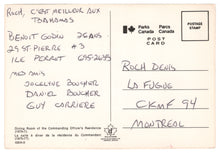 ROCH, C'EST MEILLEUR AUX
BAHAMAS
BENOIT GODIN 26 ANS
25 ST-PIERRE #3
ILE PERROT
MES AMIS
JOCELYNE BOUCHER
DANIEL BOUCHER
GUY CARRIERE
Parks Canada
Parcs Canada
POST CARD
POSTAGE
STAMP
ROCH DENIS
LA FUGUE
CKMF 94
MONTREAL
Dining Room of the Commanding Officer's Residence
La salle à dîner de la résidence du Commandant